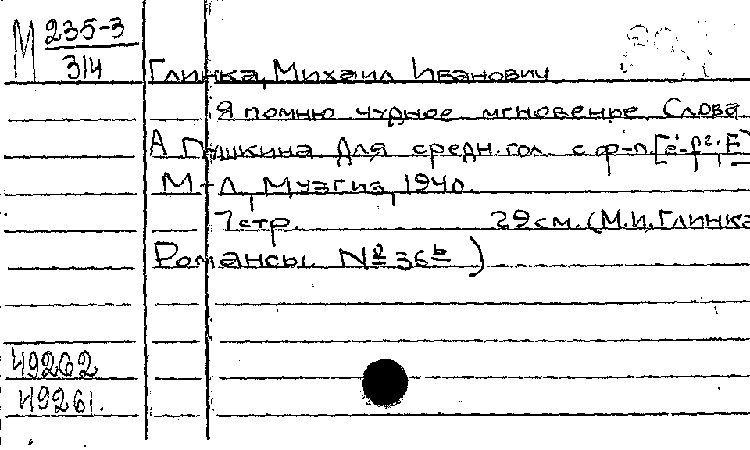 М 235-3
314
Глинка, Михаил Иванович
Я помню чудное мгновение Слова
А Пушкина Для средн. гол. с ф-п.
М-Л, Музгиз, 1940.
7стр. 29см. (М.И. Глинка
Романсы. № 36ь)
49262
49261.